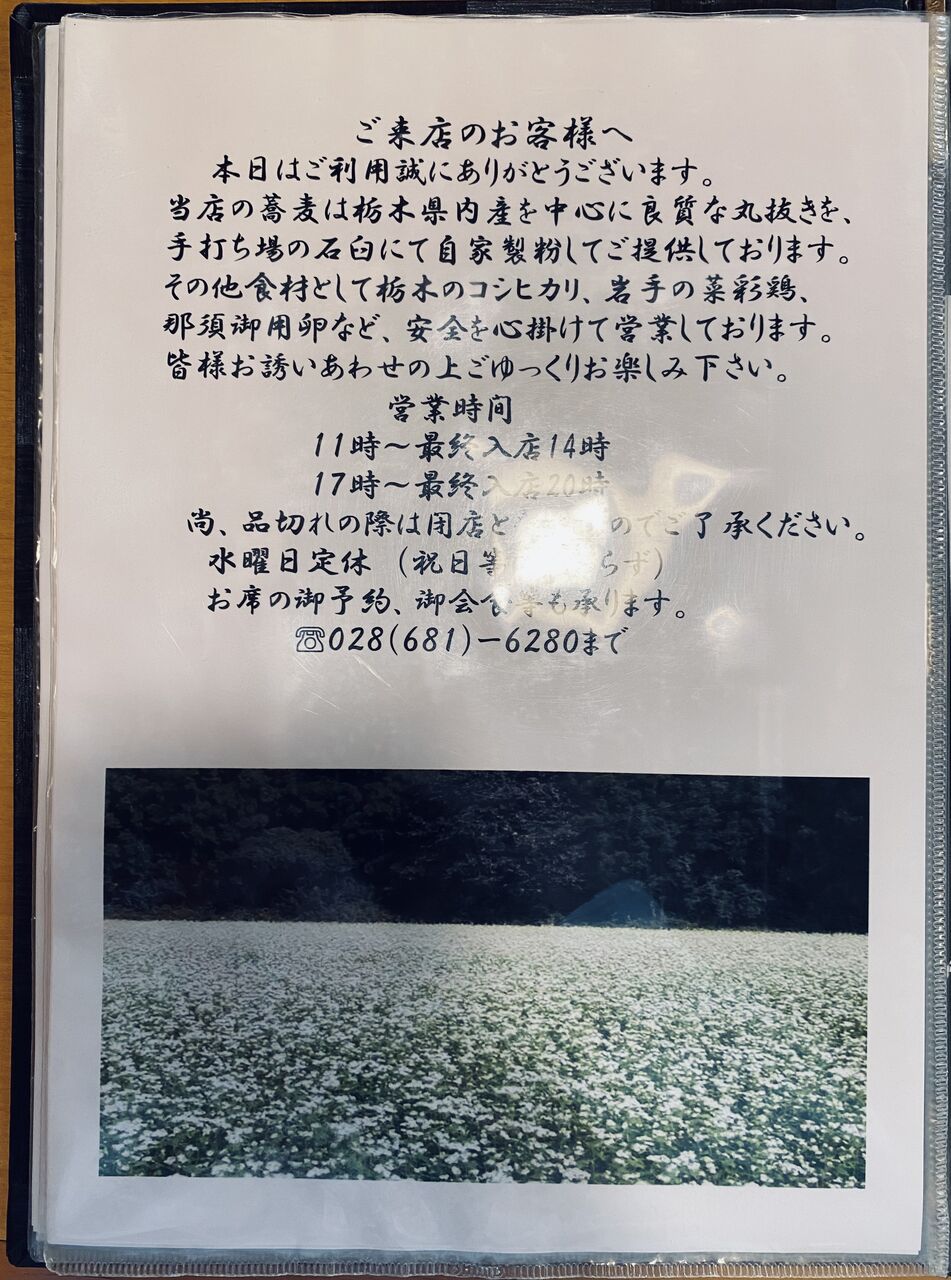 ご来店のお客様へ
本日はご利用誠にありがとうございます。
当店の蕎麦は栃木県内産を中心に良質な丸抜きを、
手打ち場の石臼にて自家製粉してご提供しております。
その他食材として栃木のコシヒカリ、岩手の菜彩鶏、
那須御用卵など、安全を心掛けて営業しております。
皆様お誘いあわせの上ごゆっくりお楽しみ下さい。
営業時間
11時～最終入店14時
17時～最終入店20時
尚、品切れの際は閉店と のでご了承ください。
水曜日定休 （祝日等 らず）
お席の御予約、御会食等も承ります。
☏028(681)ー6280まで